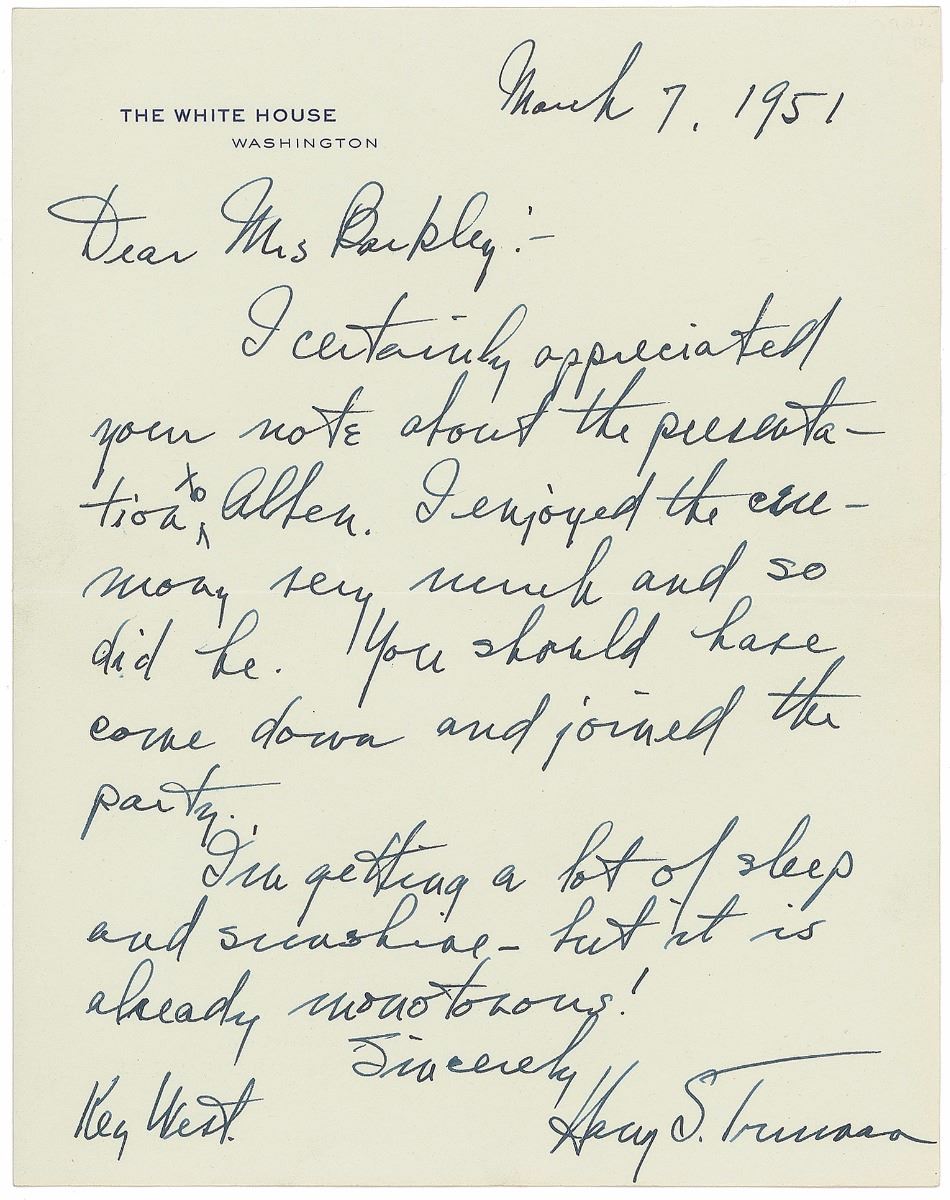 THE WHITE HOUSE
WASHINGTON
March 7, 1951
Dear Mrs Barkley:-
I certainly appreciated
your note about the presenta-
tion to Alben. I enjoyed the cere-
mony very much and so
did he. You should have
come down and joined the
party.
I'm getting a lot of sleep
and sunshine - but it is
already monotonous!
Sincerely
Key West.
Harry S. Truman